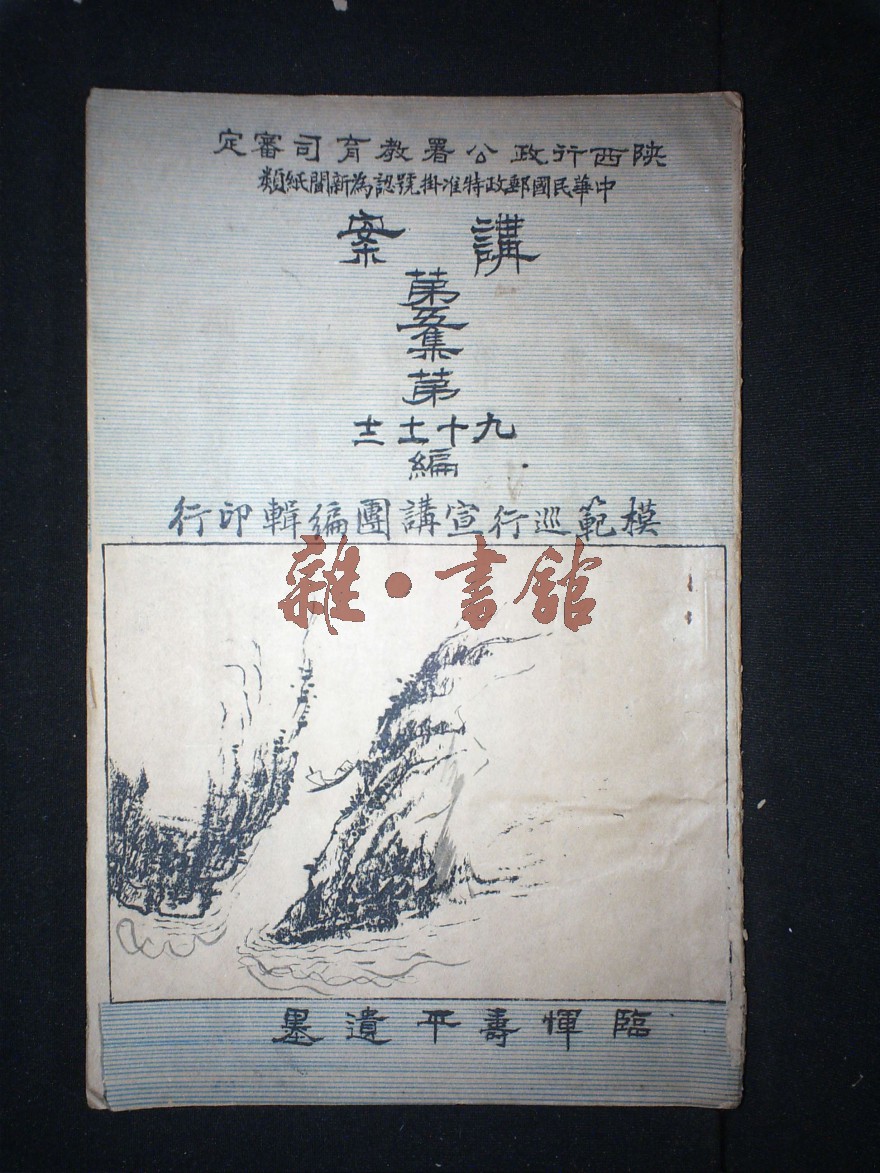 陝西行政公署教育司審定
中華民國郵政特准掛號認為新聞紙類
講案
第五集第
九十十一十二
編
模範巡行宣講團編輯印行
雜·書館
臨惲壽平遺墨